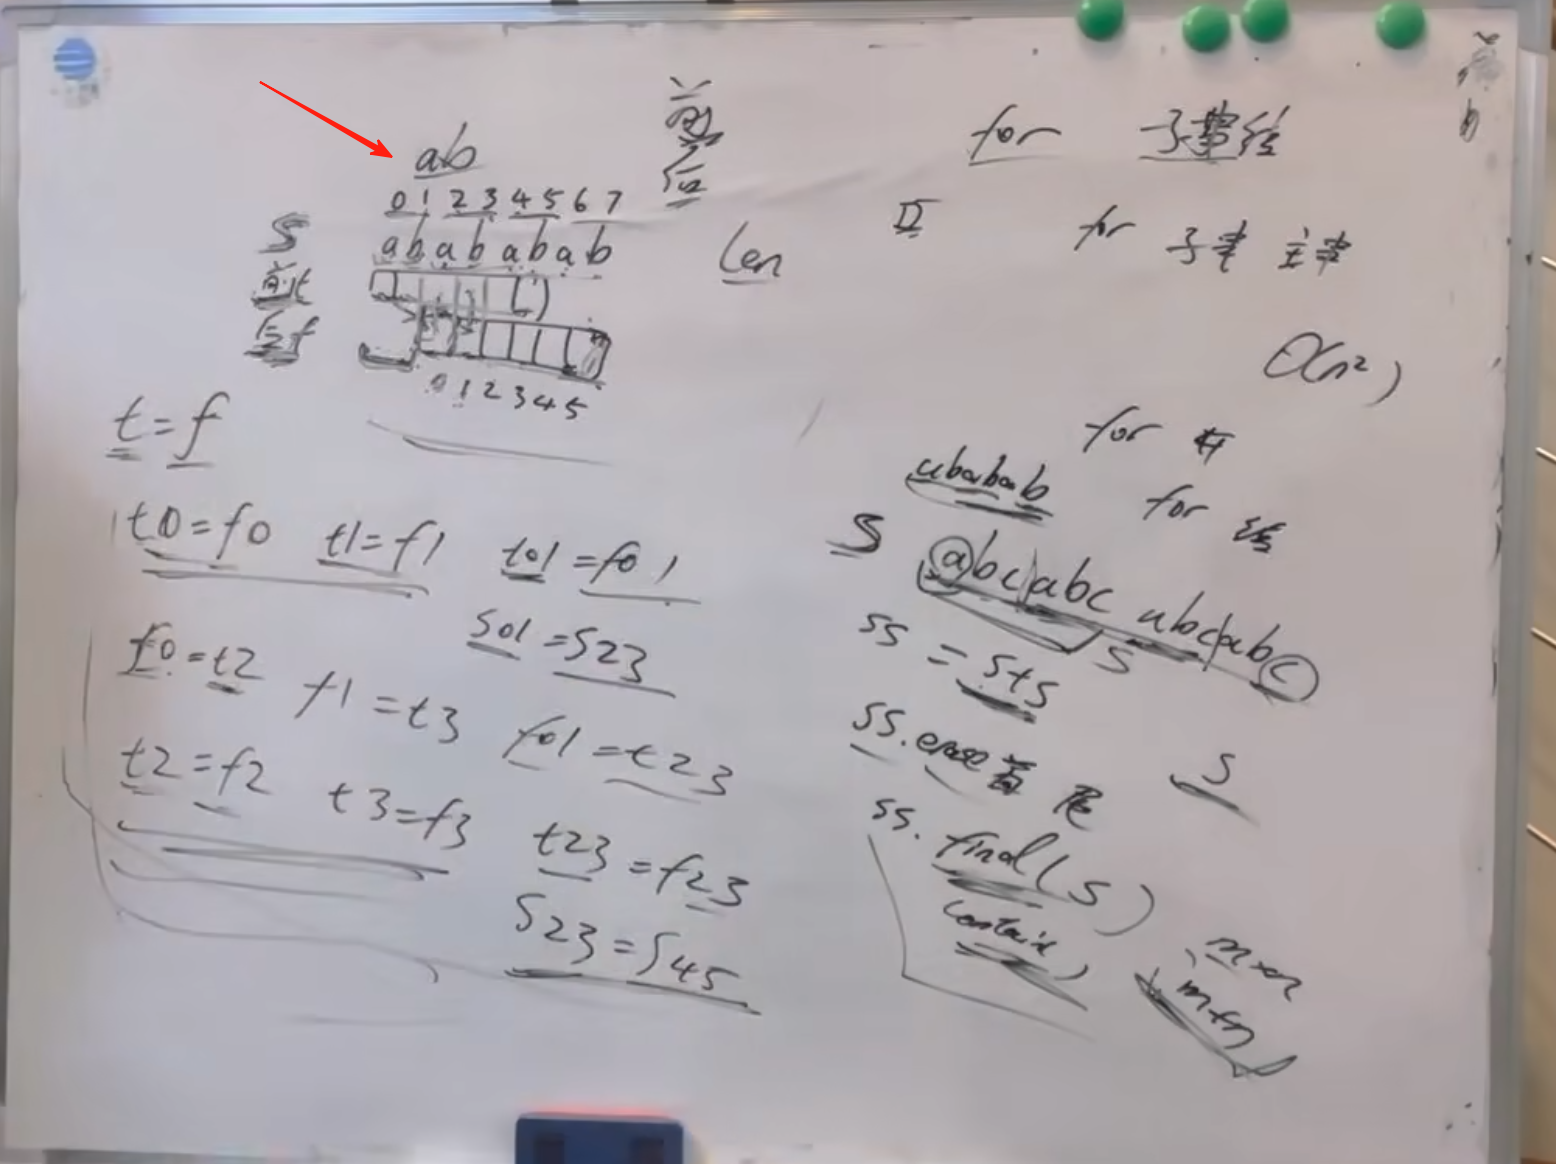 ab
0 1 2 3 4 5 6 7
S a b a b a b a b
前t
后f
0 1 2 3 4 5
前
后
len
t=f
t0=f0 t1=f1 t01=f01
S01=S23
f0=t2 f1=t3 f01=t23
t2=f2 t3=f3 t23=f23
S23=S45
for 子串结
for 子串 主串
O(n²)
for
for
ababab
S abc|abc abc|abc
S
ss=s+s
ss.erase 首 尾
S
ss.find(s)
contain
m×n
m+n